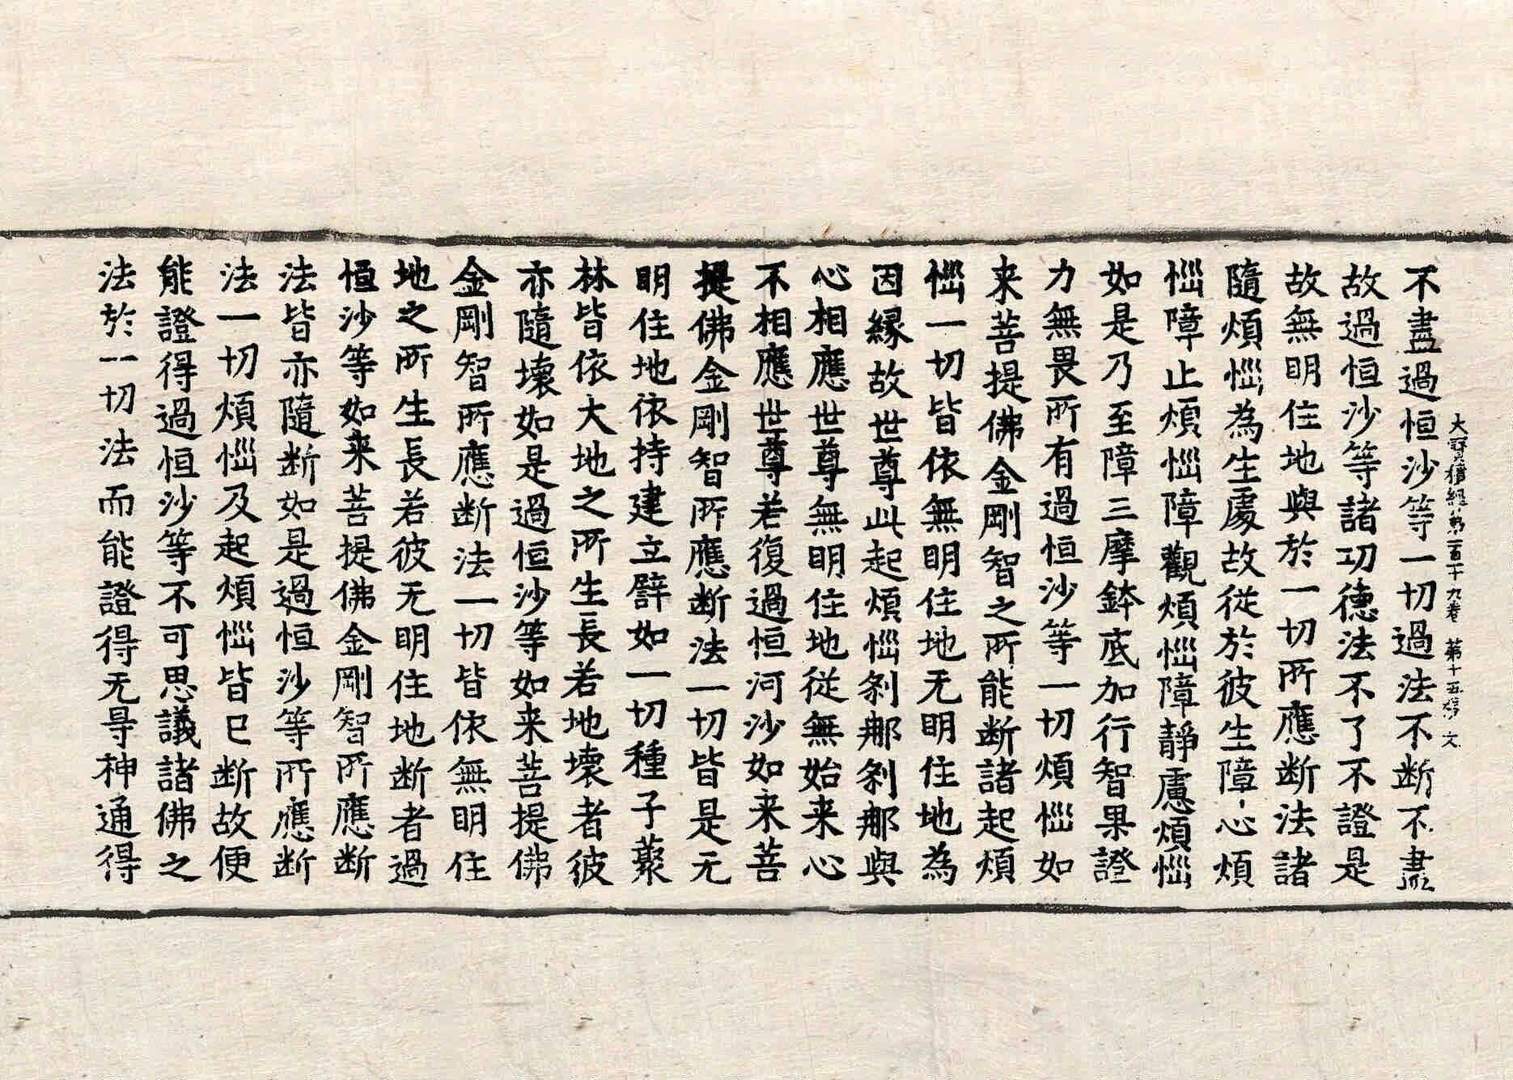 大寶積經第一百十九卷 第十五張 文
不盡過恒沙等一切過法不断不盡
故過恒沙等諸功德法不了不證是
故無明住地與於一切所應断法諸
隨煩惱為生處故從於彼生障心煩
惱障止煩惱障觀煩惱障靜慮煩惱
如是乃至障三摩鉢底加行智果證
力無畏所有過恒沙等一切煩惱如
来菩提佛金剛智之所能断諸起煩
惱一切皆依無明住地无明住地為
因縁故世尊此起煩惱刹那刹那與
心相應世尊無明住地從無始来心
不相應世尊若復過恒河沙如来菩
提佛金剛智所應断法一切皆是无
明住地依持建立譬如一切種子藂
林皆依大地之所生長若地壊者彼
亦隨壊如是過恒沙等如来菩提佛
金剛智所應断法一切皆依無明住
地之所生長若彼无明住地断者過
恒沙等如来菩提佛金剛智所應断
法皆亦隨断如是過恒沙等所應断
法一切煩惱及起煩惱皆已断故便
能證得過恒沙等不可思議諸佛之
法於一切法而能證得无㝵神通得